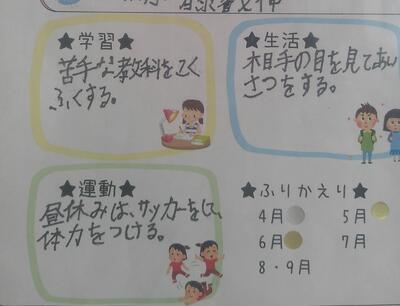 ★学習★
苦手な教科をこく
ふくする。
★生活★
相手の目を見てあい
さつをする。
★運動★
昼休みは、サッカーをして、
体力をつける。
★ふりかえり★
4月 5月
6月 7月
8・9月